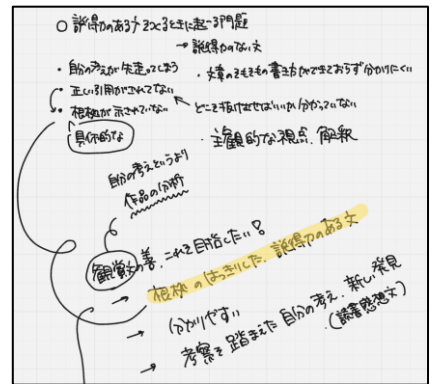 ○ 説得力のある文をつくるときに起こる問題
→ 説得力のない文
・自分の考えが先走ってしまう
・文章のそもそもの書き方ができておらず分かりにくい
・正しい引用がされてない
・根拠が示されていない
どこを抜け出せばいいか分かっていない
具体的な
・主観的な視点、解釈
自分の考えというより
作品の分析
観賞文の善、これを目指したい!
→ 根拠のはっきりした、説得力のある文
→ 分かりやすい
→ 考察を踏まえた自分の考え、新しい発見
(読書感想文)